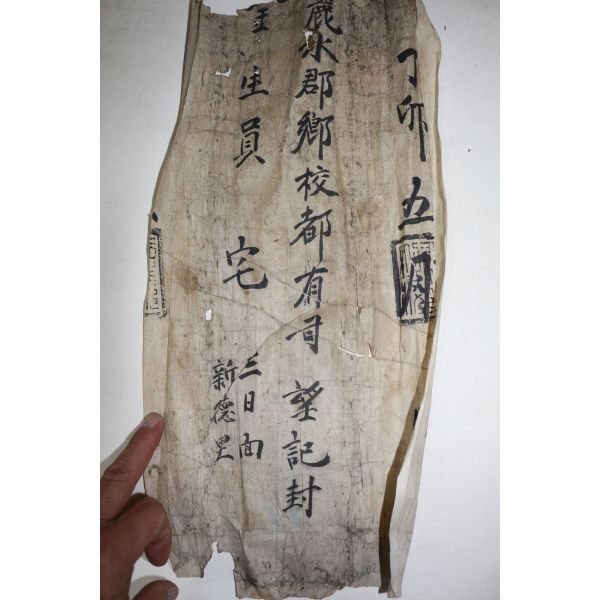 丁卯 五月
麗水郡鄕校都有司 望記封
生員 宅
三日面
新德里